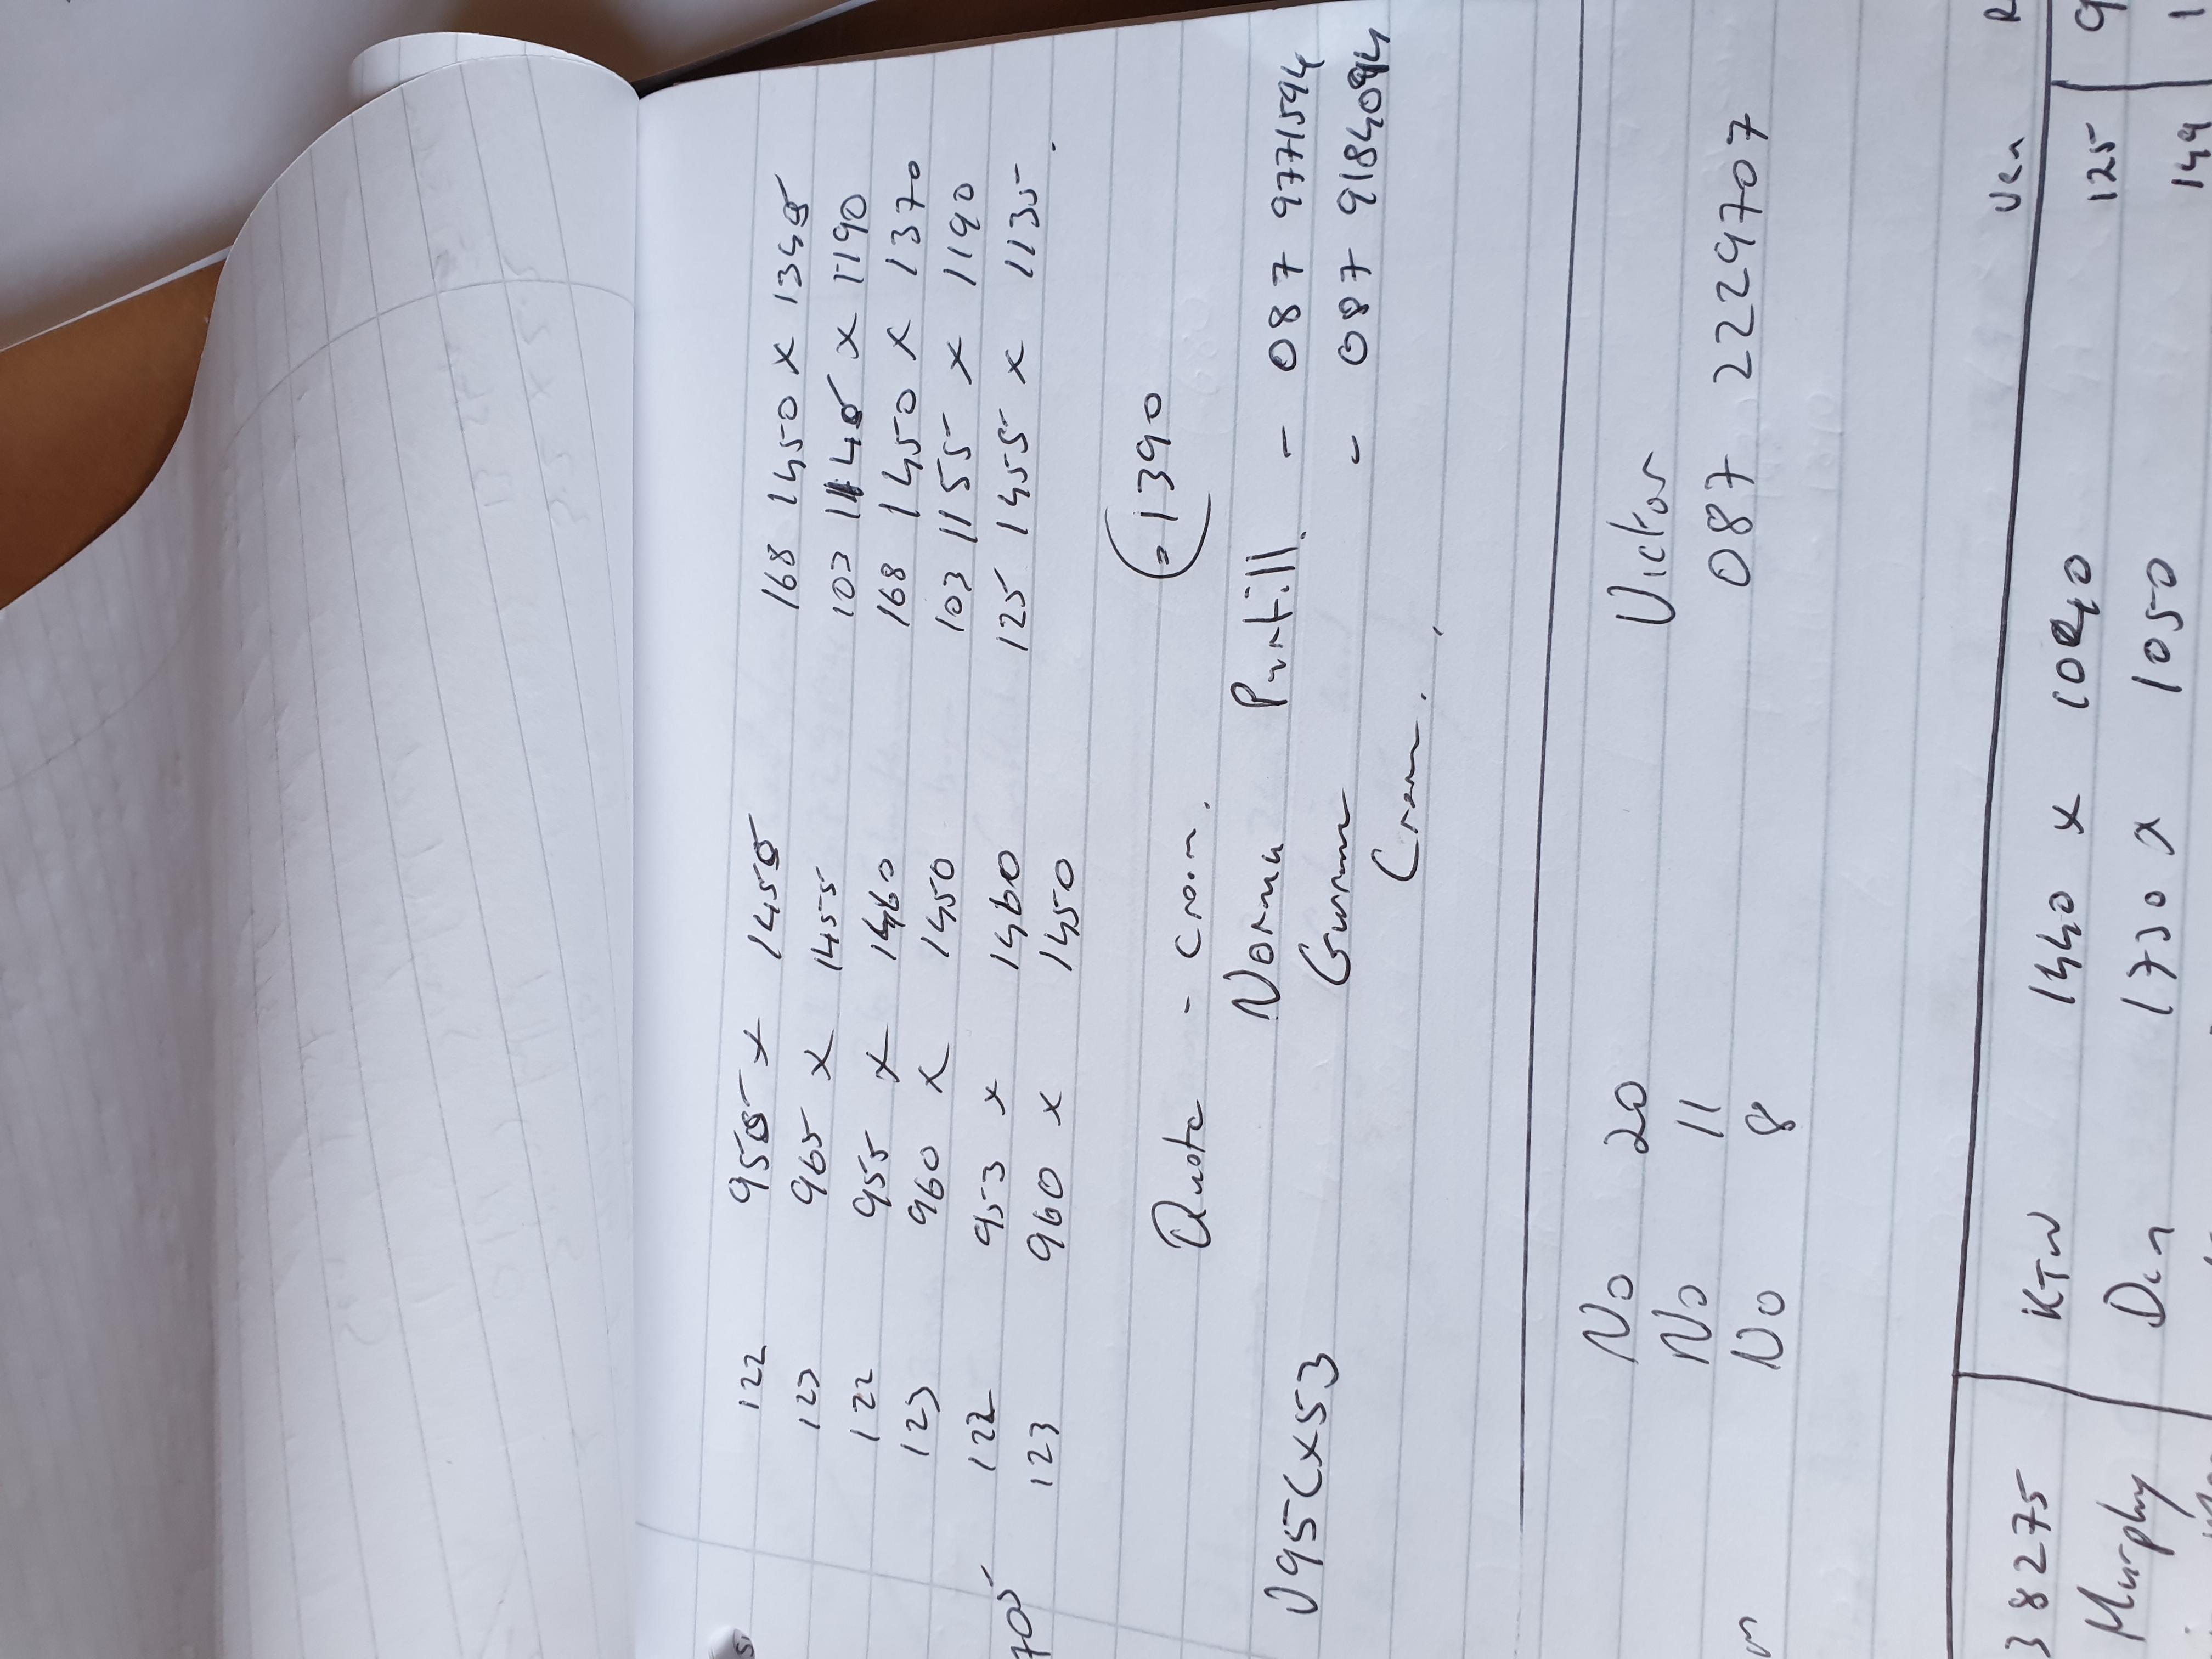 122 955 x 1455 168 1450 x 1345
123 965 x 1455 103 1145 x 1190
122 955 x 1460 168 1450 x 1370
123 960 x 1450 103 1155 x 1190
122 953 x 1460 125 1455 x 1135
123 960 x 1450
Quote - Croom. (= 1390
Norma Purtill. - 087 9771594
V95CX53 - 087 9184094
Croom.
No 20 Victor
No 11 087 2229707
No 8
38275 KTW 1440 x 1040 Ven
Murphy Din 1730 x 1050 125
149